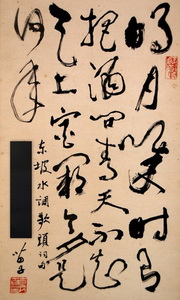 明月幾时有
把酒问青天不知
天上宫阙今夕是
何年
东坡水调歌头词句